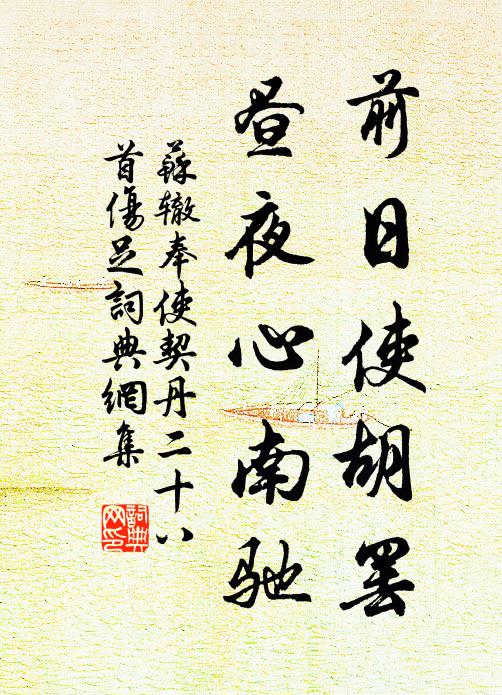 前日使胡罢
昼夜心南驰
蘇辙奉使契丹二十八
首傷足詞典網集
詞典
网印